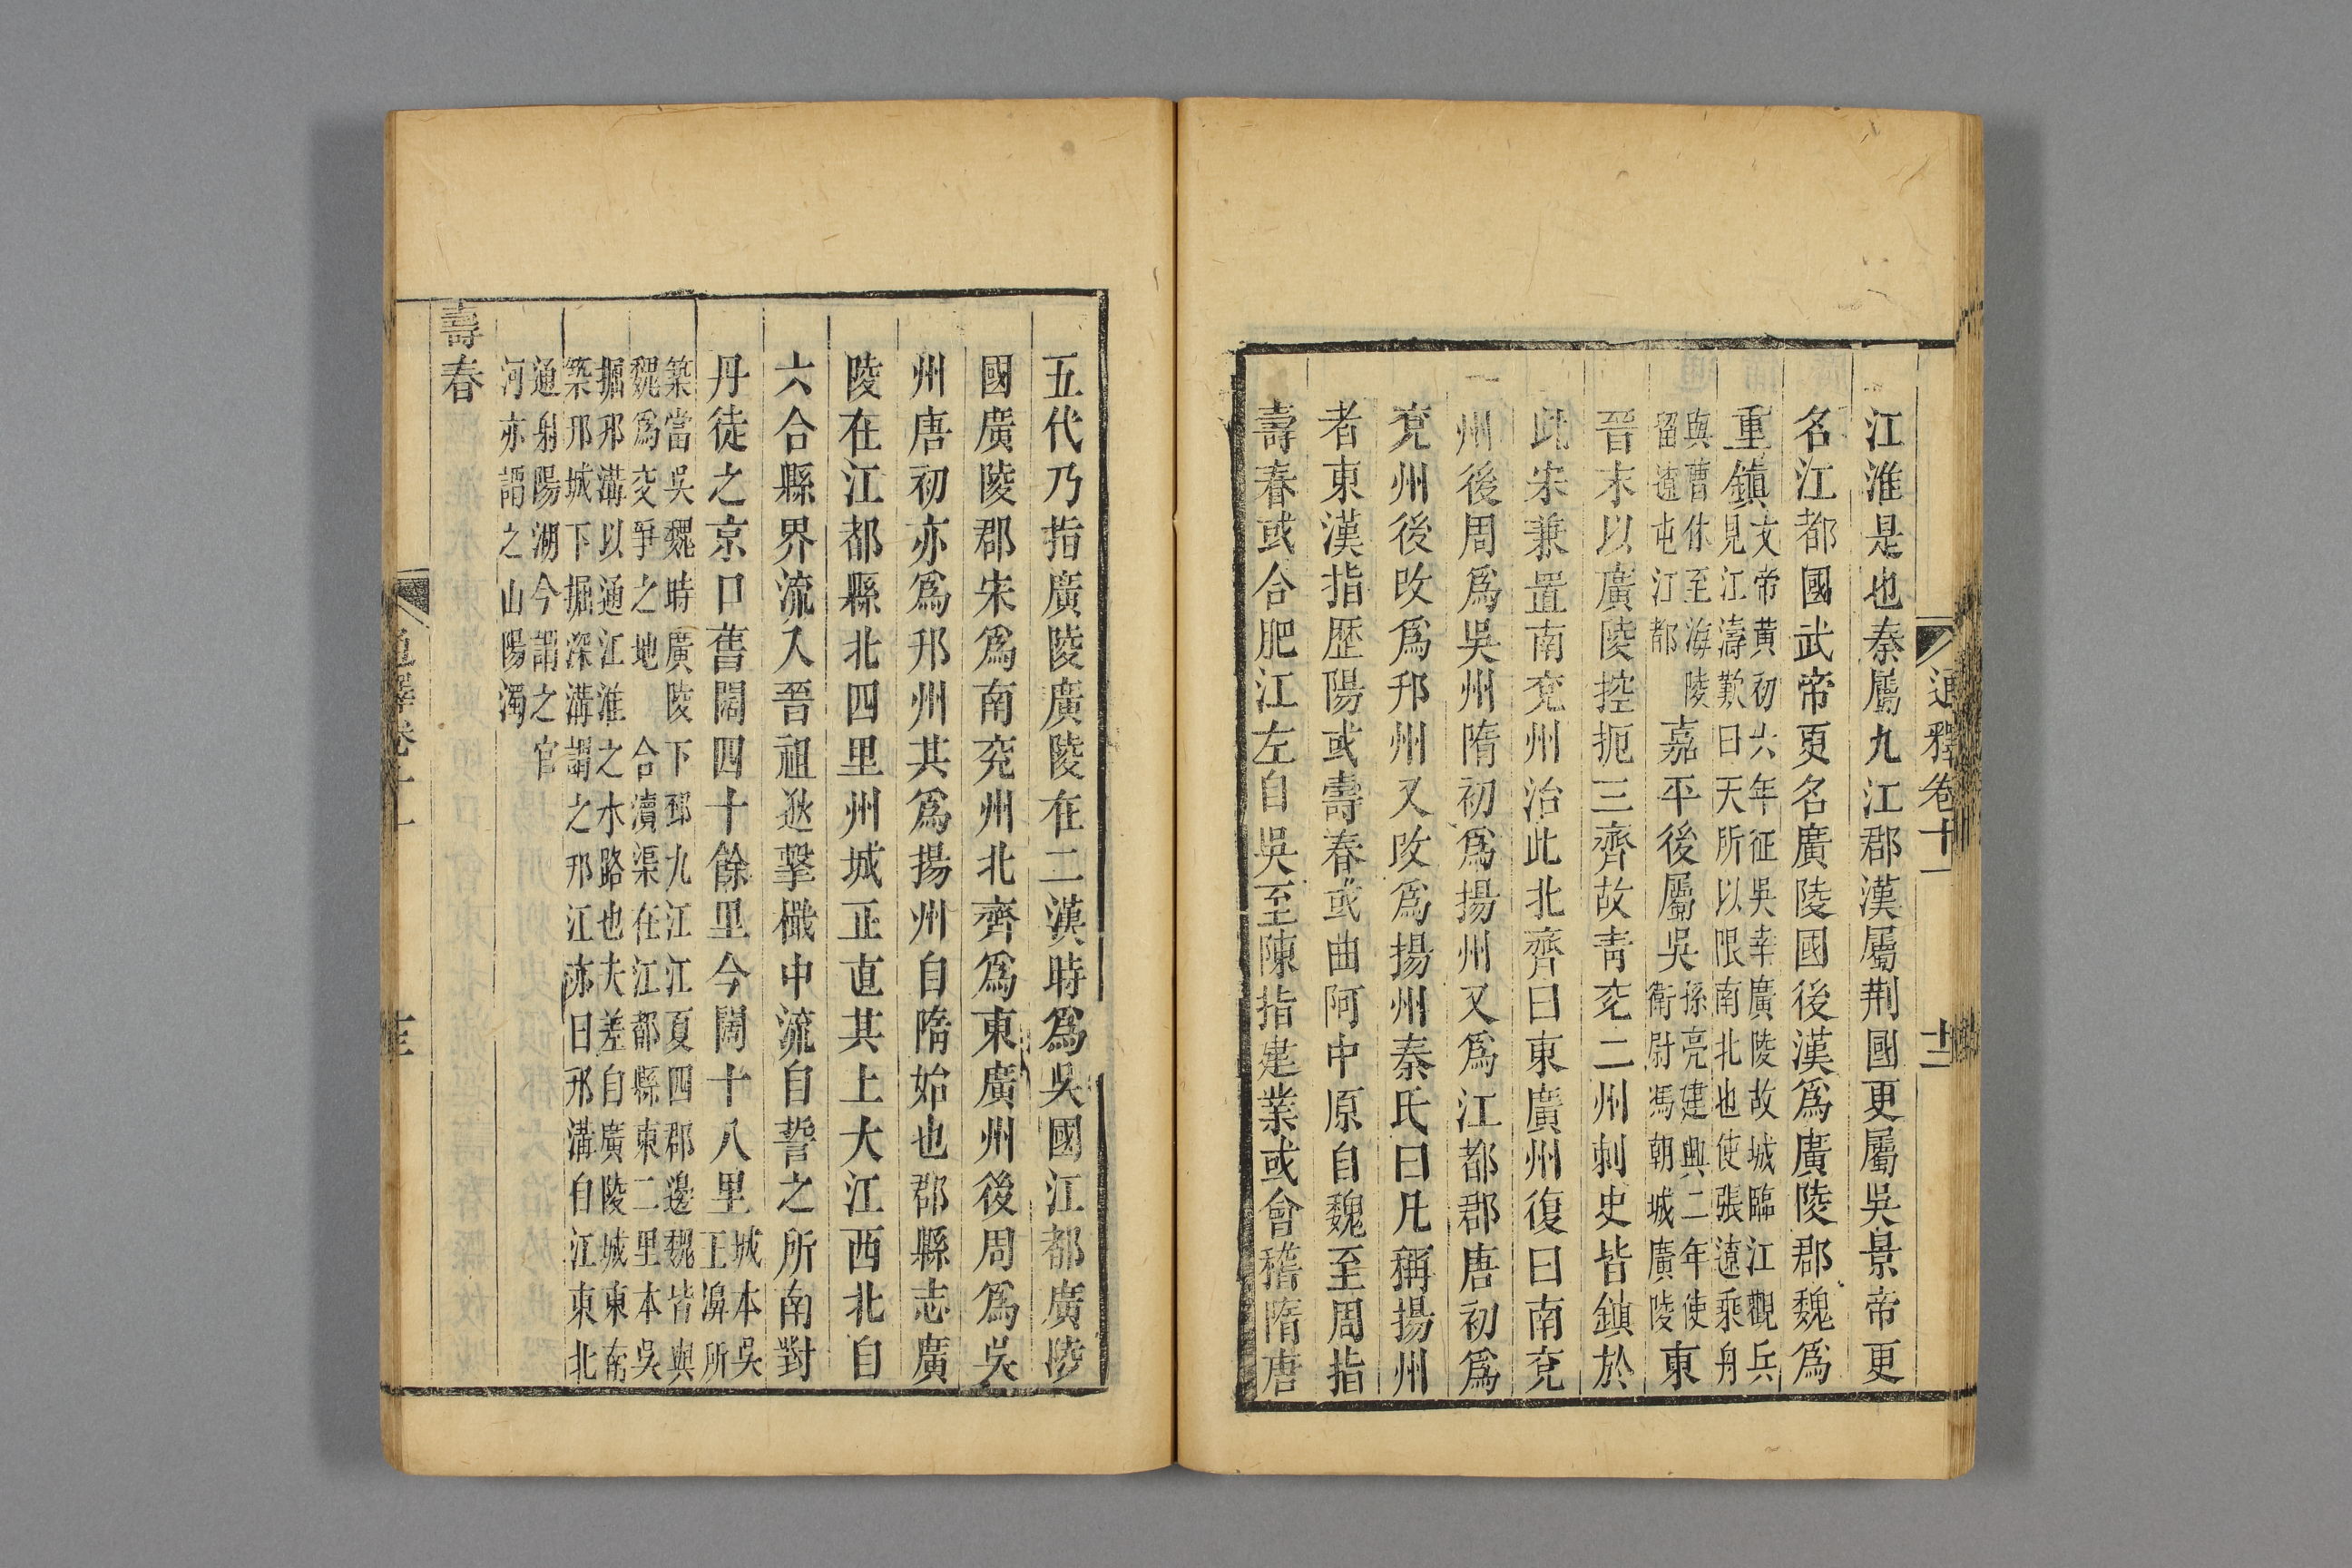 通釋卷十一 十二
江淮是也秦屬九江郡漢屬荆國更屬吳景帝更
名江都國武帝更名廣陵國後漢爲廣陵郡魏爲
重鎮文帝黃初六年征吳幸廣陵故城臨江觀兵
見江濤歎曰天所以限南北也使張遼乘舟
與曹休至海陵
留遼屯江都嘉平後屬吳孫亮建興二年使
衛尉馮朝城廣陵東
晉末以廣陵控扼三齊故靑兗二州刺史皆鎮於
此宋兼置南兗州治此北齊曰東廣州復曰南兗
州後周爲吳州隋初爲揚州又爲江都郡唐初爲
兗州後改爲邗州又改爲揚州秦氏曰凡稱揚州
者東漢指歷陽或壽春或曲阿中原自魏至周指
壽春或合肥江左自吳至陳指建業或會稽隋唐
五代乃指廣陵廣陵在二漢時爲吳國江都廣陵
國廣陵郡宋爲南兗州北齊爲東廣州後周爲吳
州唐初亦爲邗州其爲揚州自隋始也郡縣志廣
陵在江都縣北四里州城正直其上大江西北自
六合縣界流入晉祖逖擊檝中流自誓之所南對
丹徒之京口舊闊四十餘里今闊十八里城本吳
王濞所
築當吳魏時廣陵下邳九江江夏四郡邊魏皆與
魏爲交爭之地 合瀆渠在江都縣東二里本吳
掘邗溝以通江淮之水路也夫差自廣陵城東南
築邗城下掘深溝謂之邗江亦曰邗溝自江東北
通射陽湖今謂之官
河亦謂之山陽瀆
壽春